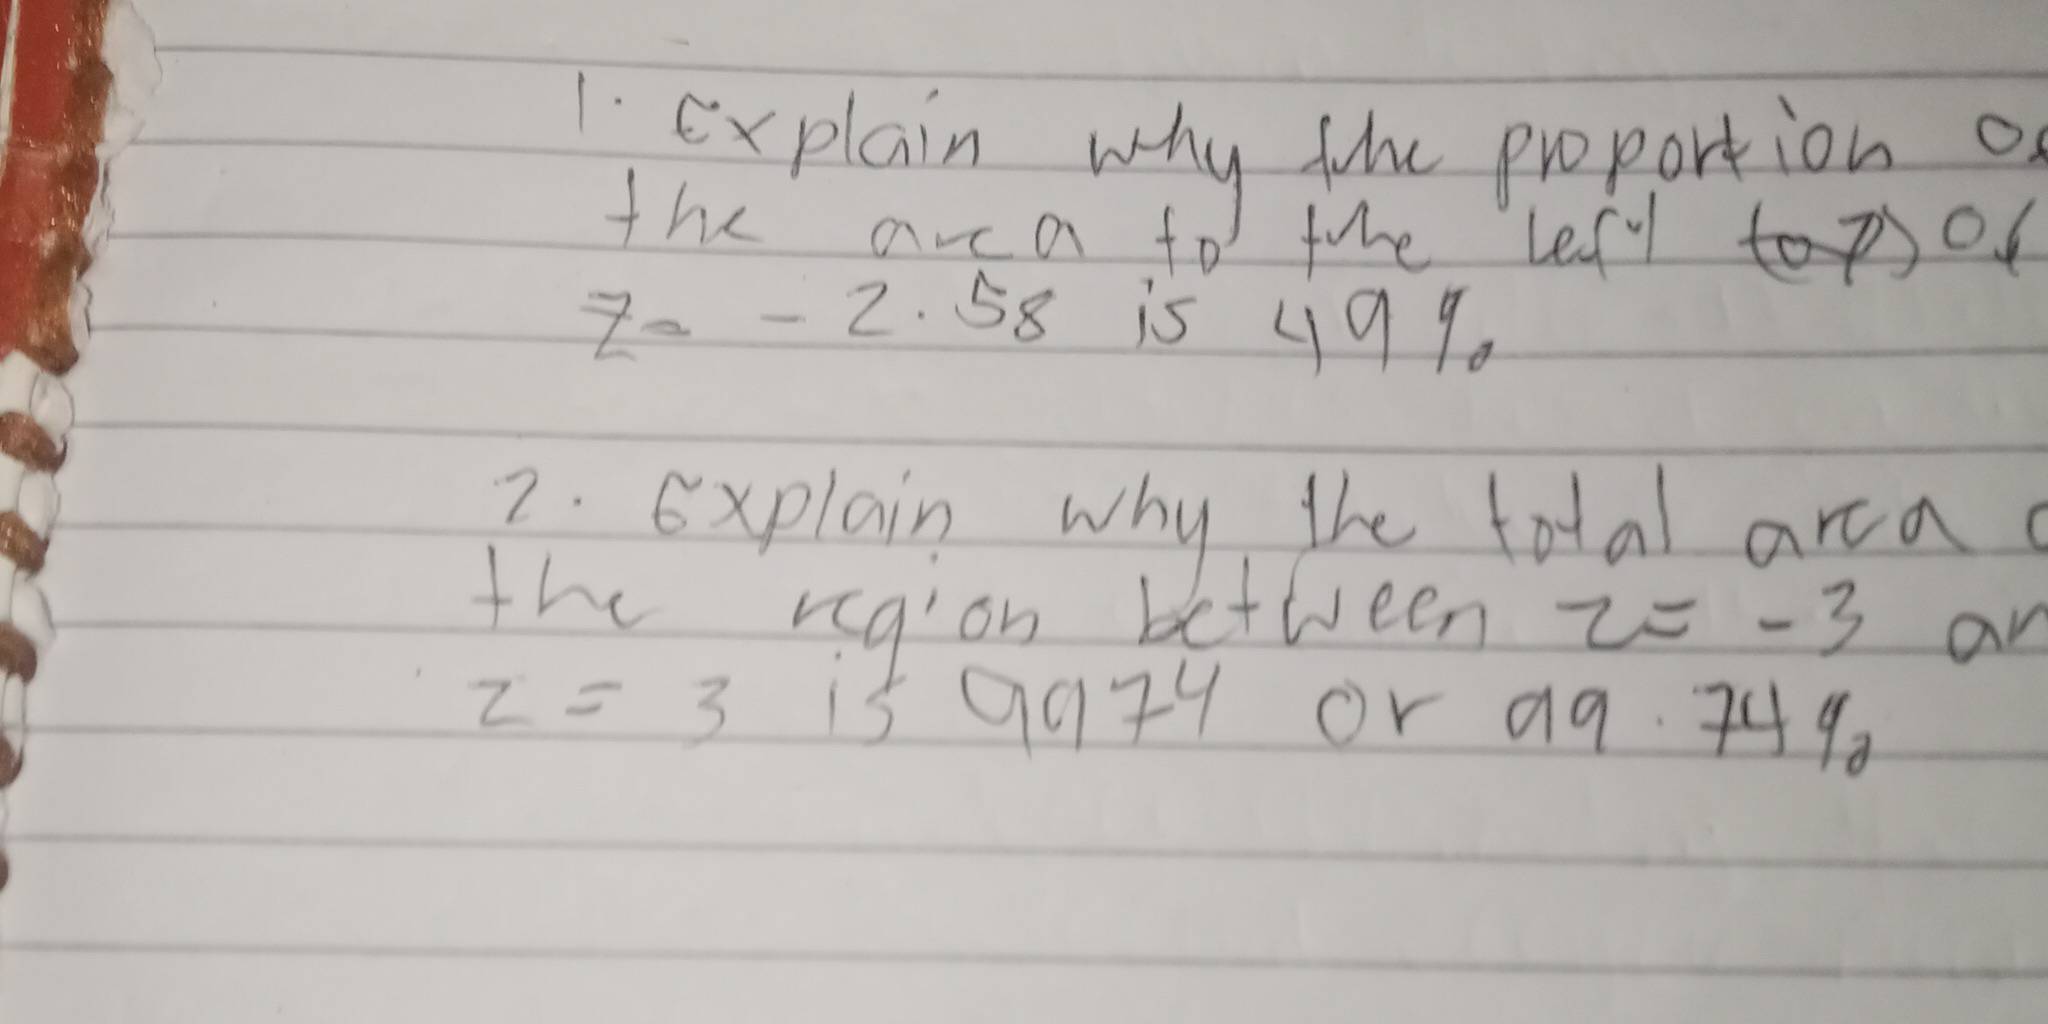 1. Explain why the proportion of
the area to the left of
z = -2.58 is 49%
2. Explain why the total area
the region between z = -3
z = 3 is 9974 or 99.74%